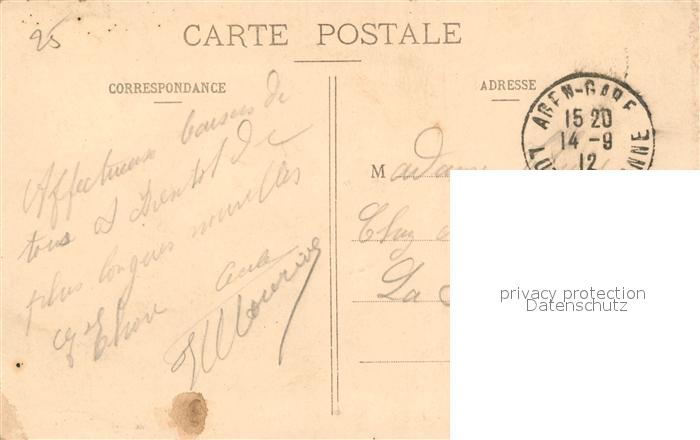 25
CARTE POSTALE
CORRESPONDANCE
ADRESSE
Affectueux baisers de
tous et bientôt de
plus longues nouvelles
AGEN-GARE
15 20
14 -9
12
LOT
NNE
Madame
Chez
La
privacy protection
Datenschutz